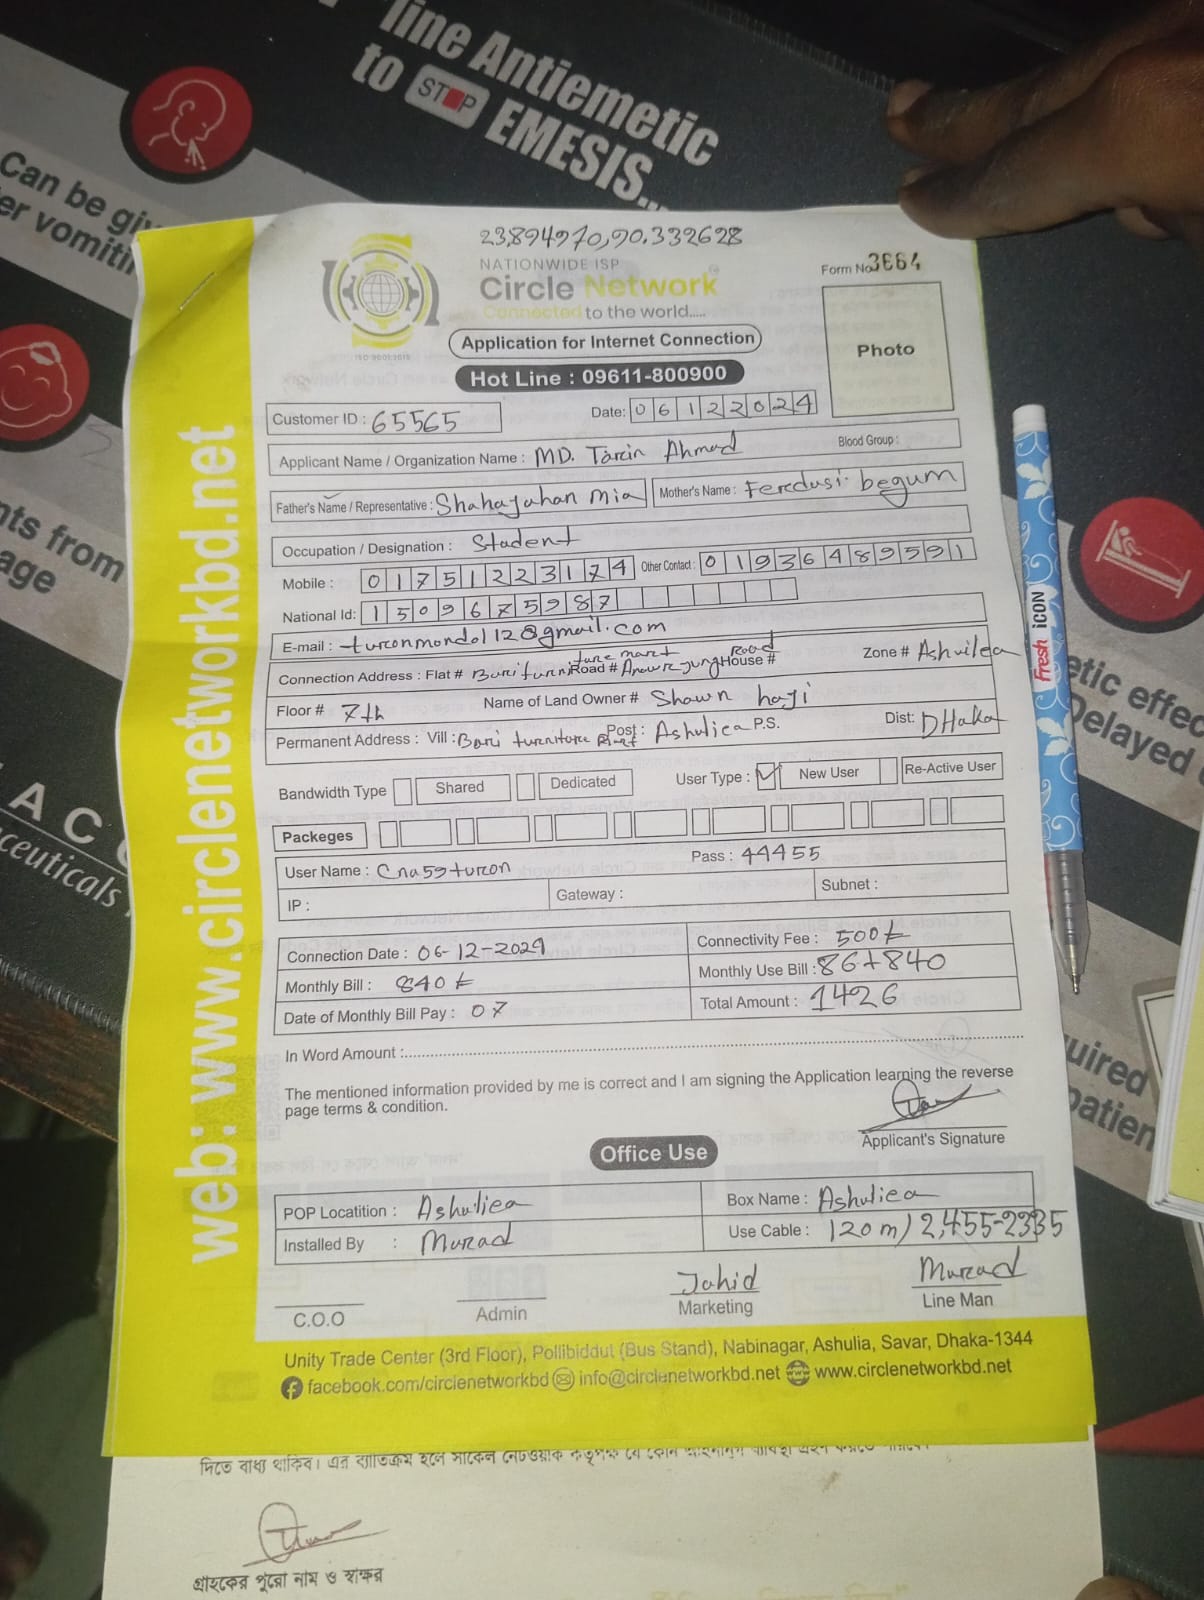 line Antiemetic
to STOP EMESIS...
Can be
vomiting
23.894970,90.332628
NATIONWIDE ISP
Circle Network
Connected to the world.....
ISO 9001:2015
Form No 3664
Photo
Application for Internet Connection
Hot Line : 09611-800900
Customer ID : 65565
Date: 06122024
Applicant Name / Organization Name : MD. Tarcin Ahmed
Blood Group :
Father's Name / Representative : Shahajahan Mia
Mother's Name : Feredusi begum
Occupation / Designation : Student
Mobile : 01751223174
Other Contact : 01936489591
National Id: 1509675987
E-mail : turconmondol12@gmail.com
Connection Address : Flat # Bari Road # House # Road Zone # Ashvilea
Floor # 7th Name of Land Owner # Shawn haji
Permanent Address : Vill : Bari Post : Ashulica P.S. Dist: DHaka
Bandwidth Type Shared Dedicated User Type : ✓ New User Re-Active User
Packeges
User Name : Cna59turcon Pass : 44455
IP : Gateway : Subnet :
Connection Date : 06-12-2024
Connectivity Fee : 500৳
Monthly Bill : 840৳
Monthly Use Bill : 86+840
Date of Monthly Bill Pay : 07
Total Amount : 1426
In Word Amount :
The mentioned information provided by me is correct and I am signing the Application learning the reverse
page terms & condition.
Applicant's Signature
Office Use
POP Locatition : Ashuliea
Box Name : Ashuliea
Installed By : Murad
Use Cable : 120m/2,455-2335
Jahid
Murad
C.O.O Admin Marketing Line Man
Unity Trade Center (3rd Floor), Pollibiddut (Bus Stand), Nabinagar, Ashulia, Savar, Dhaka-1344
facebook.com/circlenetworkbd info@circlenetworkbd.net www.circlenetworkbd.net
web: www.circlenetworkbd.net
দিতে বাধ্য থাকিব। এর ব্যতিক্রম হলে সার্কেল নেটওয়ার্ক কর্তৃপক্ষ যে কোন
গ্রাহকের পুরো নাম ও স্বাক্ষর
Fresh iCON